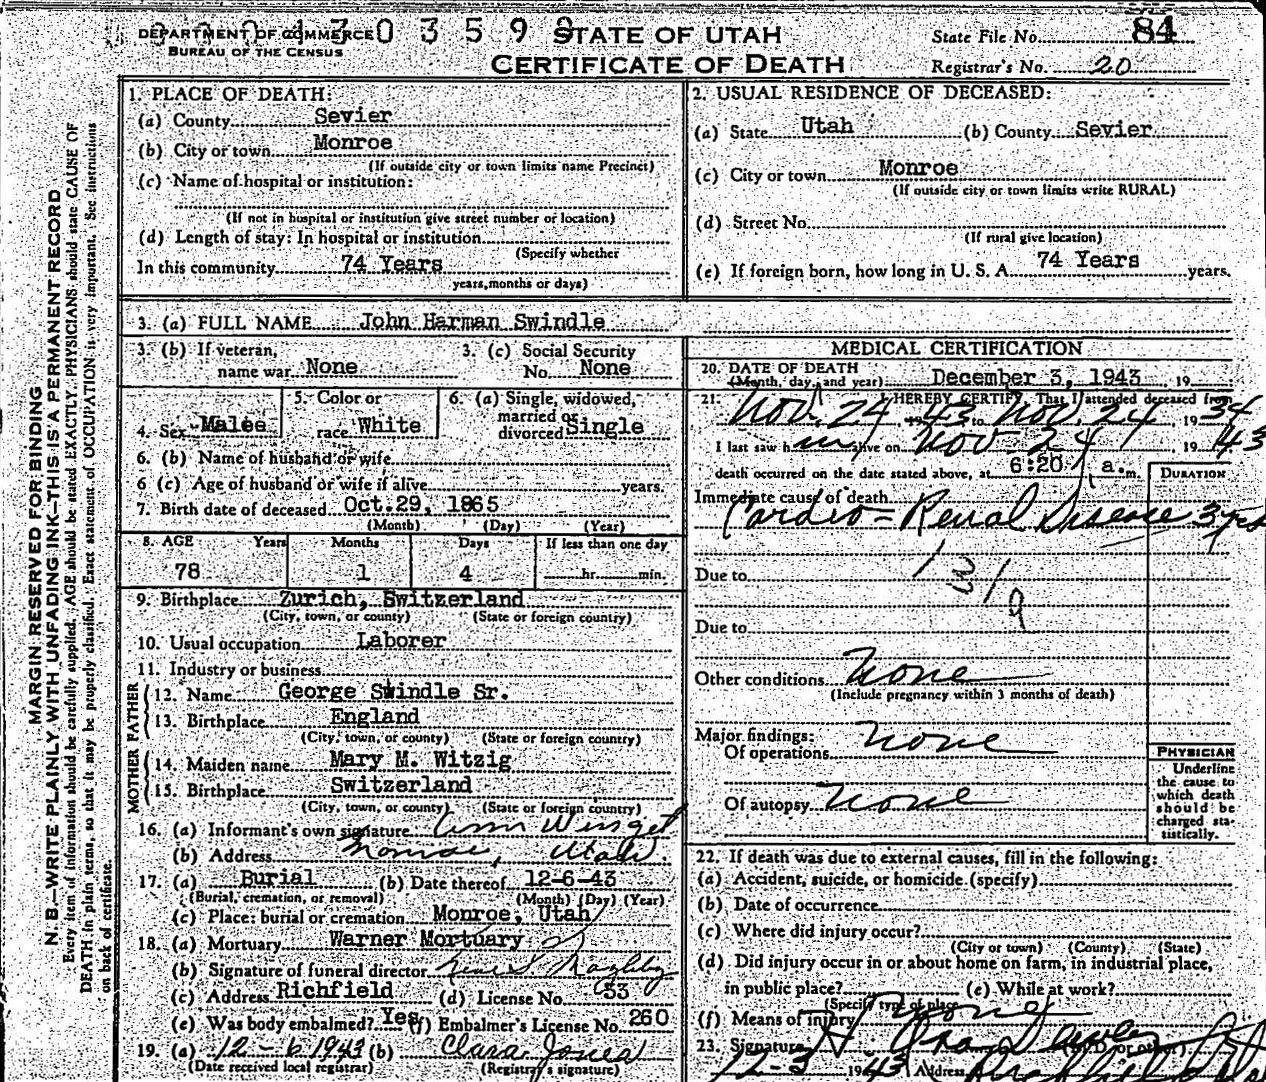 DEPARTMENT OF COMMERCE 0 3 5 9 9 STATE OF UTAH State File No. 84
BUREAU OF THE CENSUS CERTIFICATE OF DEATH Registrar's No. 20
MARGIN RESERVED FOR BINDING
N. B.—WRITE PLAINLY WITH UNFADING INK—THIS IS A PERMANENT RECORD
Every item of information should be carefully supplied. AGE should be stated EXACTLY. PHYSICIANS should state CAUSE OF
DEATH in plain terms, so that it may be properly classified. Exact statement of OCCUPATION is very important. See instructions
on back of certificate.
1. PLACE OF DEATH:
(a) County Sevier
(b) City or town Monroe
(If outside city or town limits name Precinct)
(c) Name of hospital or institution:
(If not in hospital or institution give street number or location)
(d) Length of stay: In hospital or institution
(Specify whether
In this community 74 Years
years, months or days)
2. USUAL RESIDENCE OF DECEASED:
(a) State Utah (b) County Sevier
(c) City or town Monroe
(If outside city or town limits write RURAL)
(d) Street No.
(If rural give location)
(e) If foreign born, how long in U. S. A. 74 Years years.
3. (a) FULL NAME John Harman Swindle
3. (b) If veteran, name war None
3. (c) Social Security No. None
4. Sex Malee
5. Color or race White
6. (a) Single, widowed, married or divorced Single
6. (b) Name of husband or wife
6 (c) Age of husband or wife if alive years.
7. Birth date of deceased Oct. 29, 1865
(Month) (Day) (Year)
8. AGE Years Months Days If less than one day
78 1 4 hr. min.
9. Birthplace Zurich, Switzerland
(City, town, or county) (State or foreign country)
10. Usual occupation Laborer
11. Industry or business
FATHER
12. Name George Swindle Sr.
13. Birthplace England
(City, town, or county) (State or foreign country)
MOTHER
14. Maiden name Mary M. Witzig
15. Birthplace Switzerland
(City, town, or county) (State or foreign country)
16. (a) Informant's own signature Winget
(b) Address Monroe, Utah
17. (a) Burial (b) Date thereof 12-6-43
(Burial, cremation, or removal) (Month) (Day) (Year)
(c) Place: burial or cremation Monroe, Utah
18. (a) Mortuary Warner Mortuary
(b) Signature of funeral director
(c) Address Richfield (d) License No. 33
(e) Was body embalmed? Yes (f) Embalmer's License No. 260
19. (a) 12-6 1943 (b) Clara Jones
(Date received local registrar) (Registrar's signature)
MEDICAL CERTIFICATION
20. DATE OF DEATH
(Month, day, and year) December 3, 1943, 19
21. I HEREBY CERTIFY, That I attended deceased from
Nov. 24 1943 to Nov. 24, 19
I last saw h im alive on Nov 24, 1943
death occurred on the date stated above, at 6:20 a. m.
DURATION
Immediate cause of death
Cardio-Renal Disease 3 yrs
Due to
Due to
Other conditions None
(Include pregnancy within 3 months of death)
Major findings:
Of operations None
Of autopsy None
PHYSICIAN
Underline
the cause to
which death
should be
charged sta-
tistically.
22. If death was due to external causes, fill in the following:
(a) Accident, suicide, or homicide (specify)
(b) Date of occurrence
(c) Where did injury occur?
(City or town) (County) (State)
(d) Did injury occur in or about home on farm, in industrial place,
in public place? (e) While at work?
(Specify type of place)
(f) Means of injury None
23. Signature
12-3 1943 Address